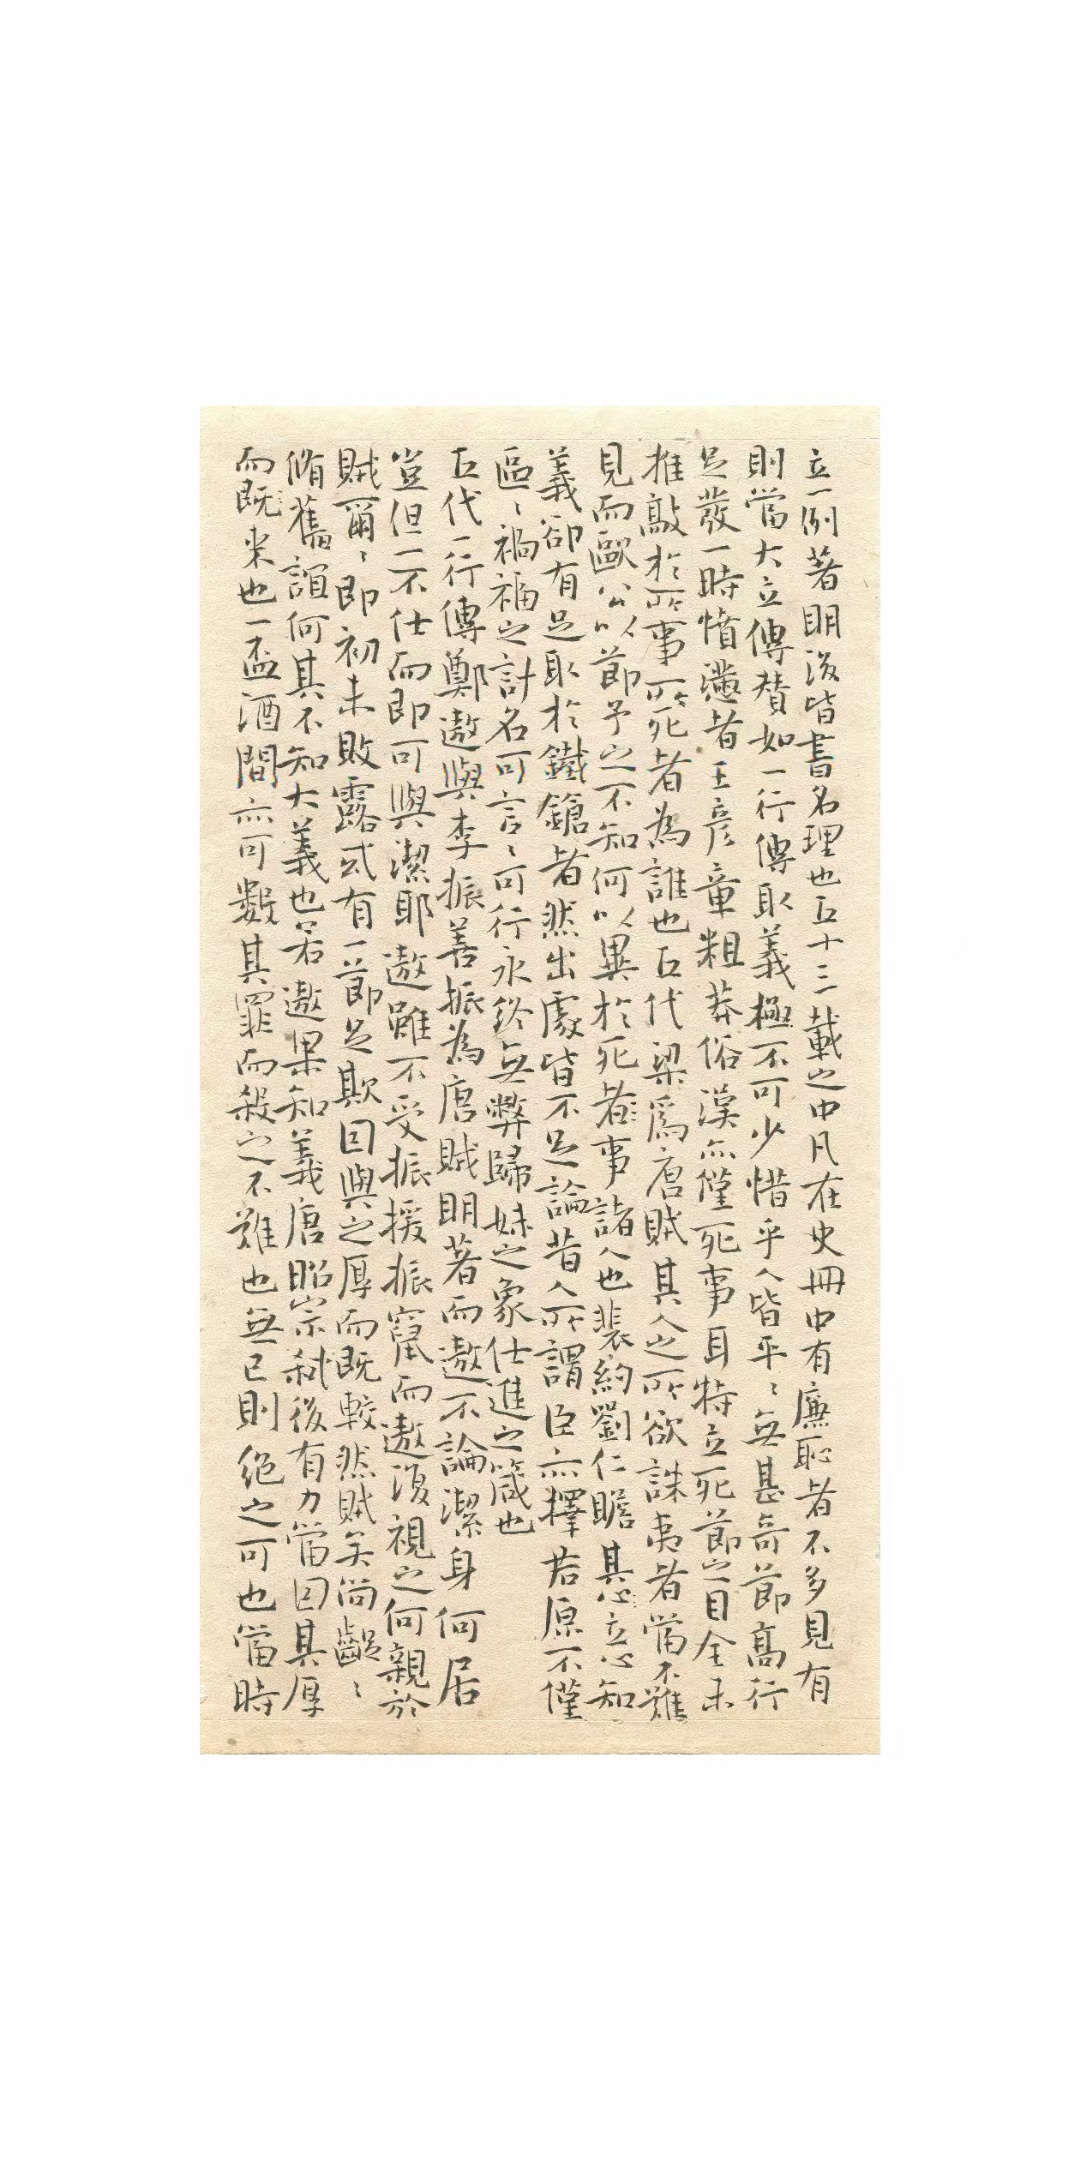 立一例著明後皆書名理也五十三載之中凡在史冊中有廉恥者不多見有
則當大立傳贊如一行傳取義極不可少惜乎人皆平〻無甚奇節高行
足發一時憤懣者王彥章粗莽俗漢亦僅死事耳特立死節之目全未
推敲於所事所死者為誰也五代梁為唐賊其人之所欲誅夷者當不難
見而歐公以節予之不知何以異於死者事諸人也裴約劉仁瞻其心立心知
義卻有足取於鐵鎗者然出處皆不足論昔人所謂臣亦擇君原不僅
區〻禍福之計名可言〻可行永終無弊歸妹之象仕進之箴也
五代一行傳鄭遨與李振善振為唐賊明著而遨不論潔身何居
豈但一不仕而即可與潔耶遨雖不受振援振竄而遨復視之何親於
賊爾〻即初未敗露或有一節足欺因與之厚而既較然賊矣尚齪〻
脩舊誼何其不知大義也若遨果知義唐昭宗弒後有力當因其厚
而既來也一盃酒間亦可數其罪而殺之不難也無已則絕之可也當時